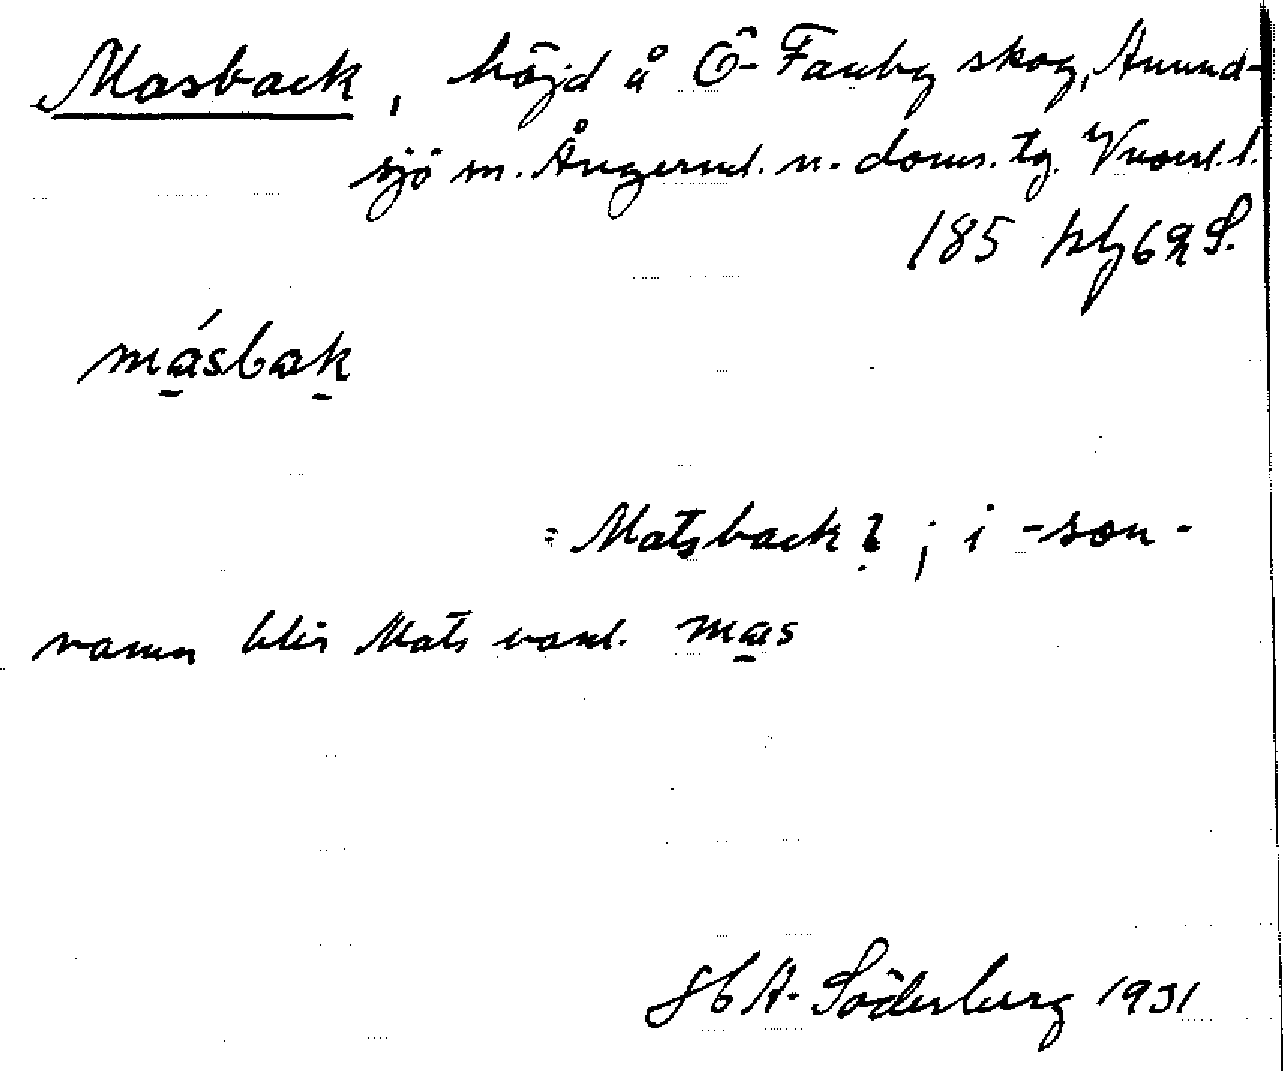 Masback, höjd å Ö-Fanby skog, Anund-
sjö sn. Ångerml. n. doms. tg. Vnorrl. l.
185 kbl 62 S.
másbak
= Matsback?; i -son-
namn blir Mats vanl. mas
H A. Söderberg 1931